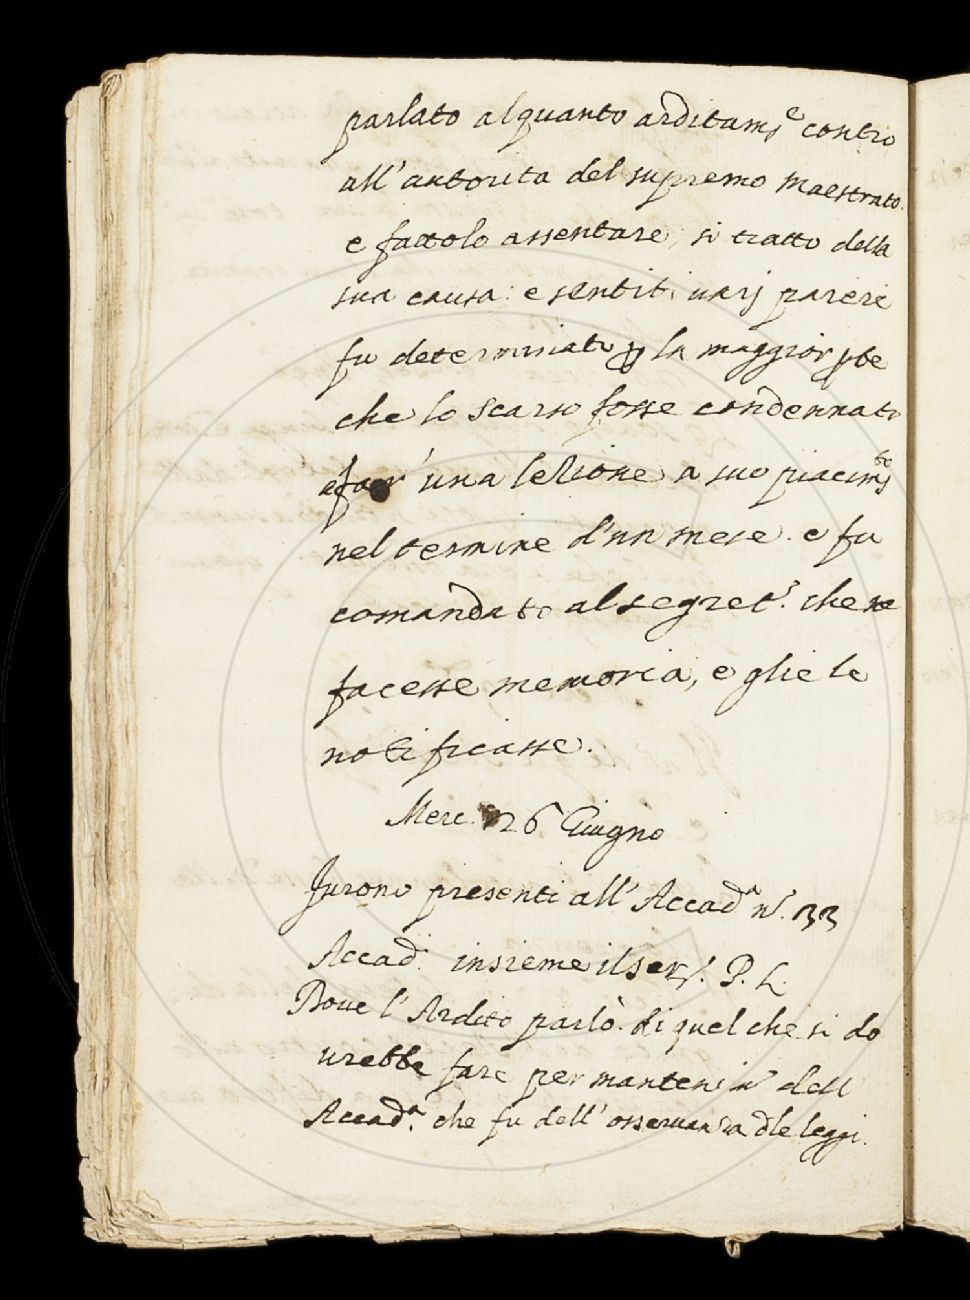 parlato alquanto arditamte contro
all'autorita del supremo Maestrato.
e fattolo assentare, si tratto della
sua causa: e sentiti varj pareri
fu determinato p la maggior pte
che lo Scarso fosse condennato
a far una lezione a suo piacimto
nel termine d'un mese. e fu
comandato al segret.o che ne
facesse memoria, e glie le
notificasse.
Merc. 26 Giugno
Furono presenti all'Accad.a n.o 33
Accad. insieme il Ser.o P. L.
Dove l'Ardito parlò di quel che si do
vrebbe fare per mantenim.o dell
Accad.a che fu dell'osservanza dle leggi.